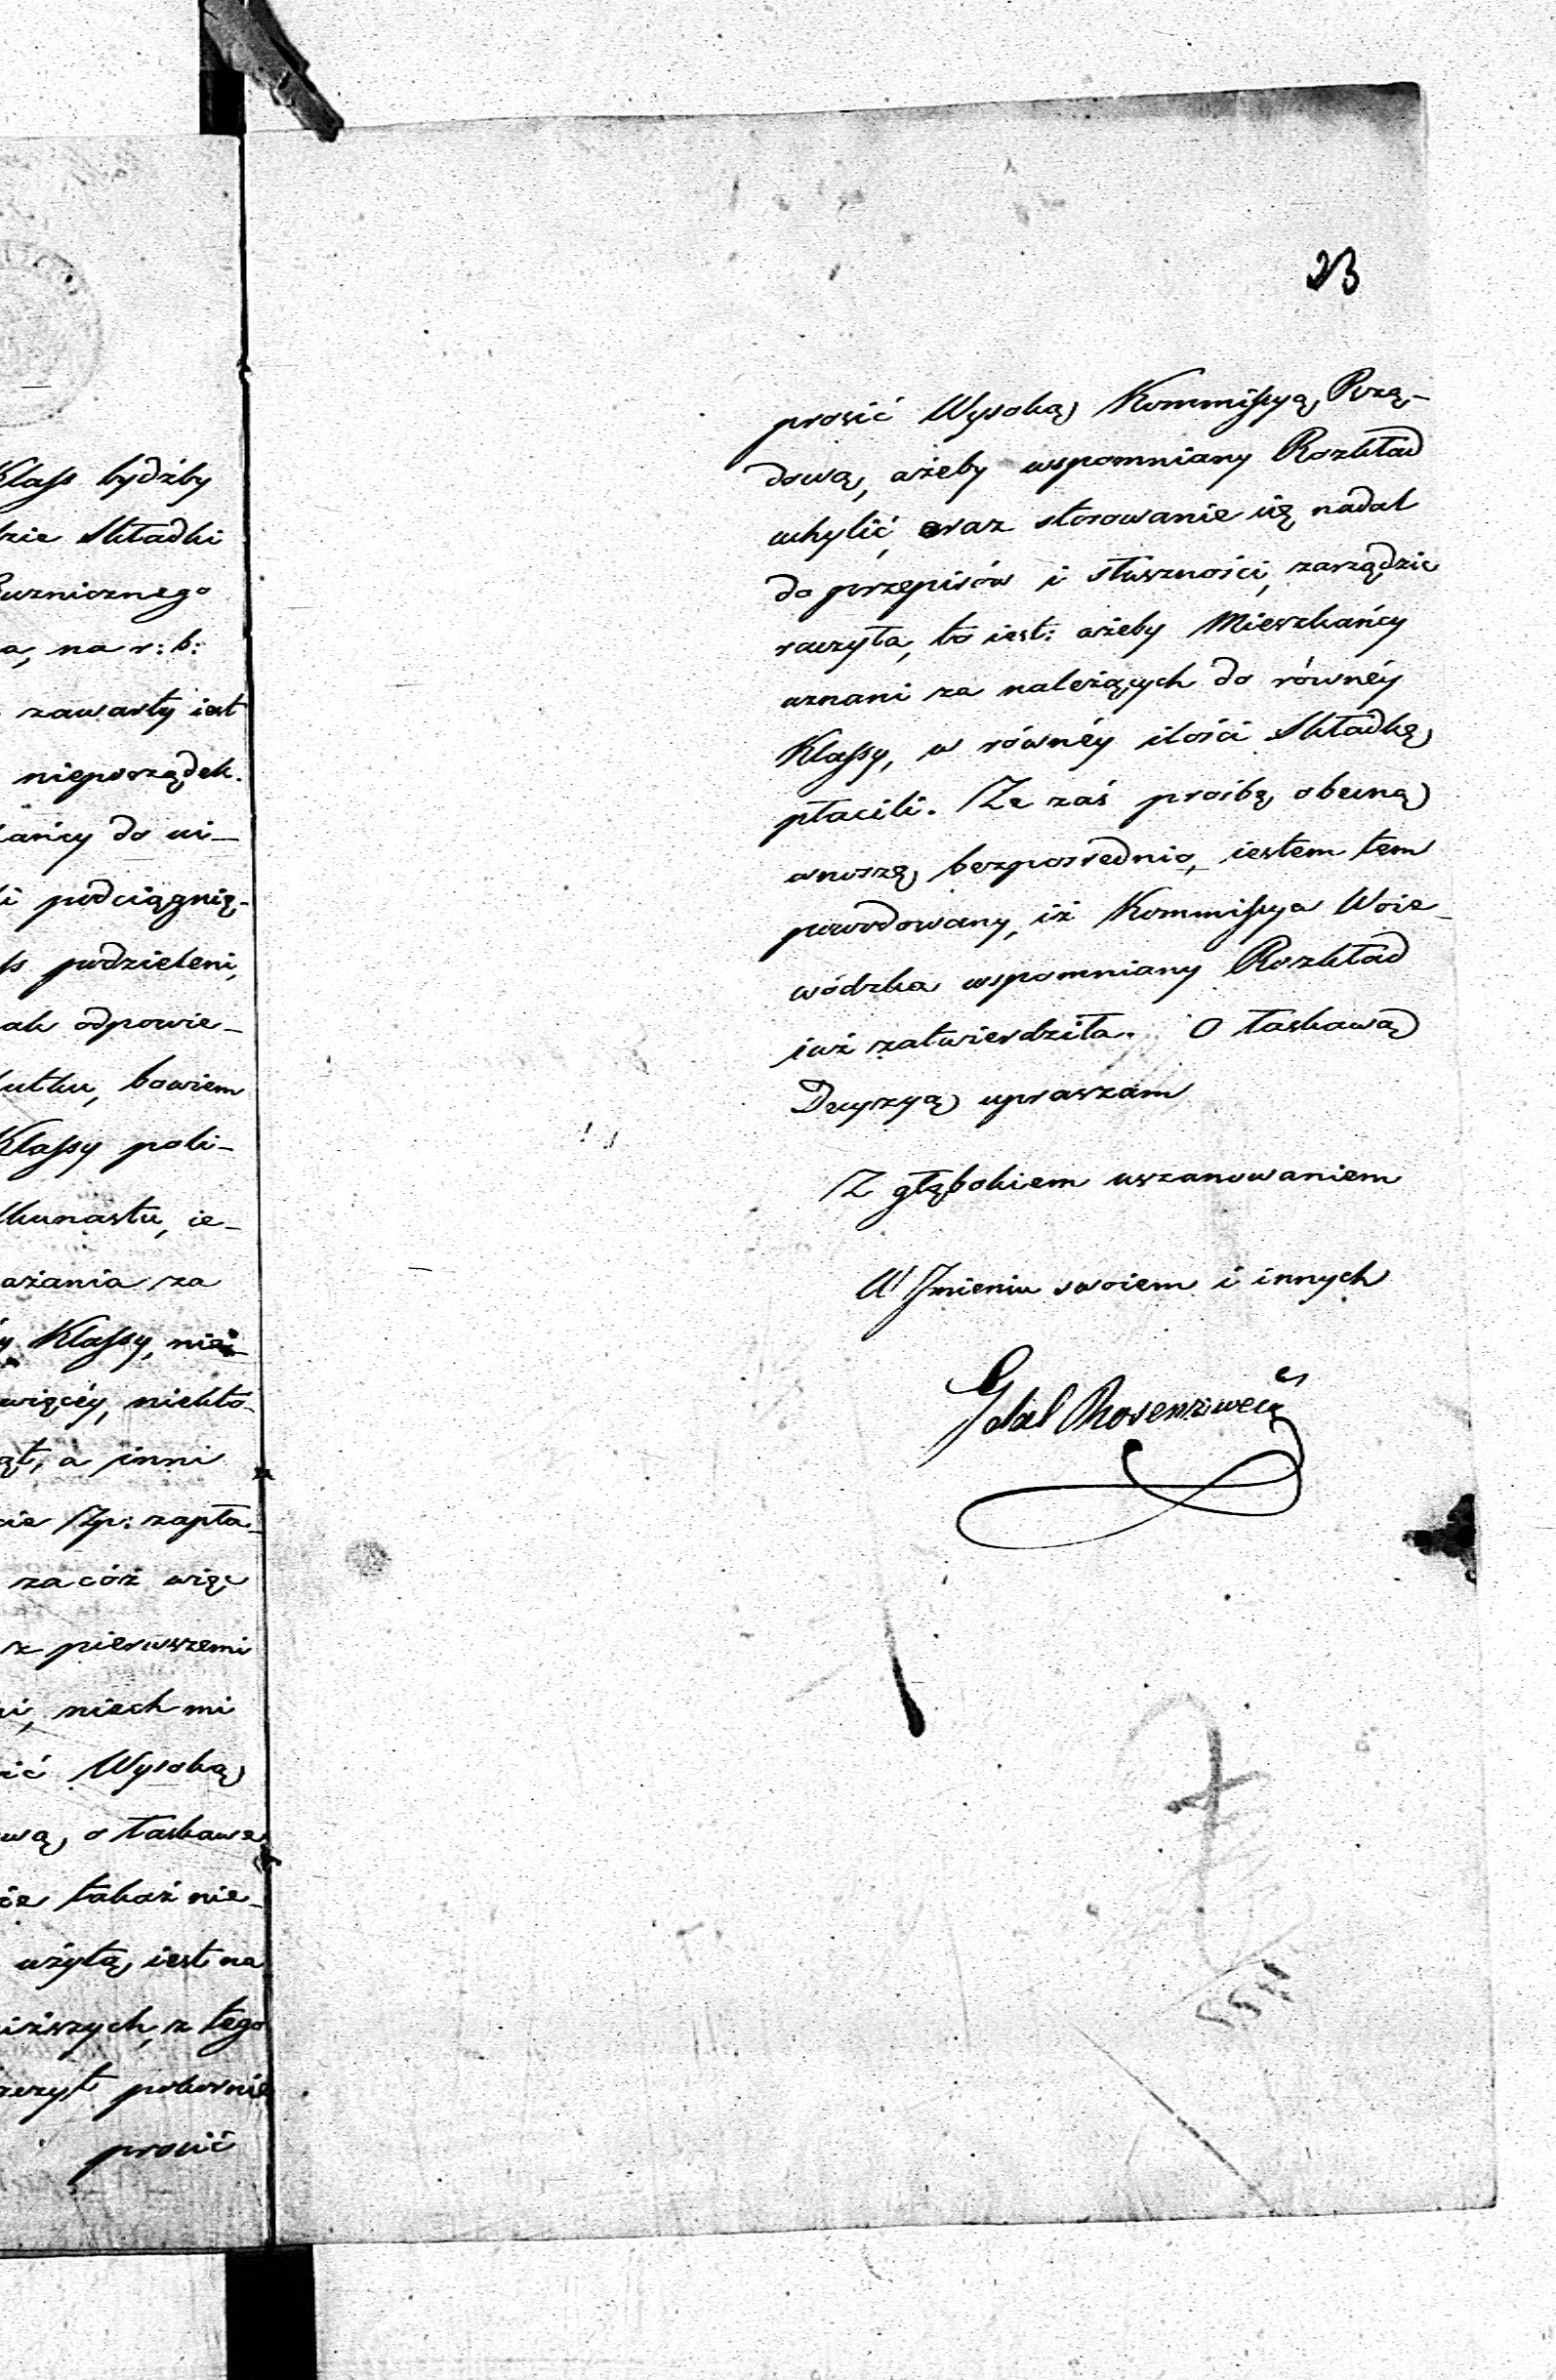 Klass bydźby
dzie Składki
Buznicznego
a, na r: b:
zawarty iest
nieporządek.
kańcy do ui-
li podciągnię-
ss podzieleni,
ak odpowie-
kutku, bowiem
Klassy poli-
lkunastu, ie-
ażania za
y Klassy, nie
więcéy, niekto-
ąt, a inni
cie Zp: zapła-
zacóż więc
z pierwszemi
ni, niech mi
sić Wysoką
wą, o łaskawe
że takaż nie-
użytą, iest na
niższych, z tego
szczyt pokornie
prosić
23
prosić Wysoką Kommissyą Rzą-
dową, ażeby wspomniany Rozkład
uchylić, oraz stosowanie się nadal
do przepisów i słuszności, zarządzić
raczyła, to iest: ażeby Mieszkańcy
uznani za należących do równéy
Klassy, w równéy ilości Składkę
płacili. Ze zaś prośbę obecną
wnoszę bezpośrednio, iestem tem
powodowany, iż Kommissya Woie-
wódzka wspomniany Rozkład
iuż zatwierdziła. O łaskawą
Decyzyą upraszam
Z głębokiem uszanowaniem
W Imieniu swoiem i innych
Gdal Rosenzweig